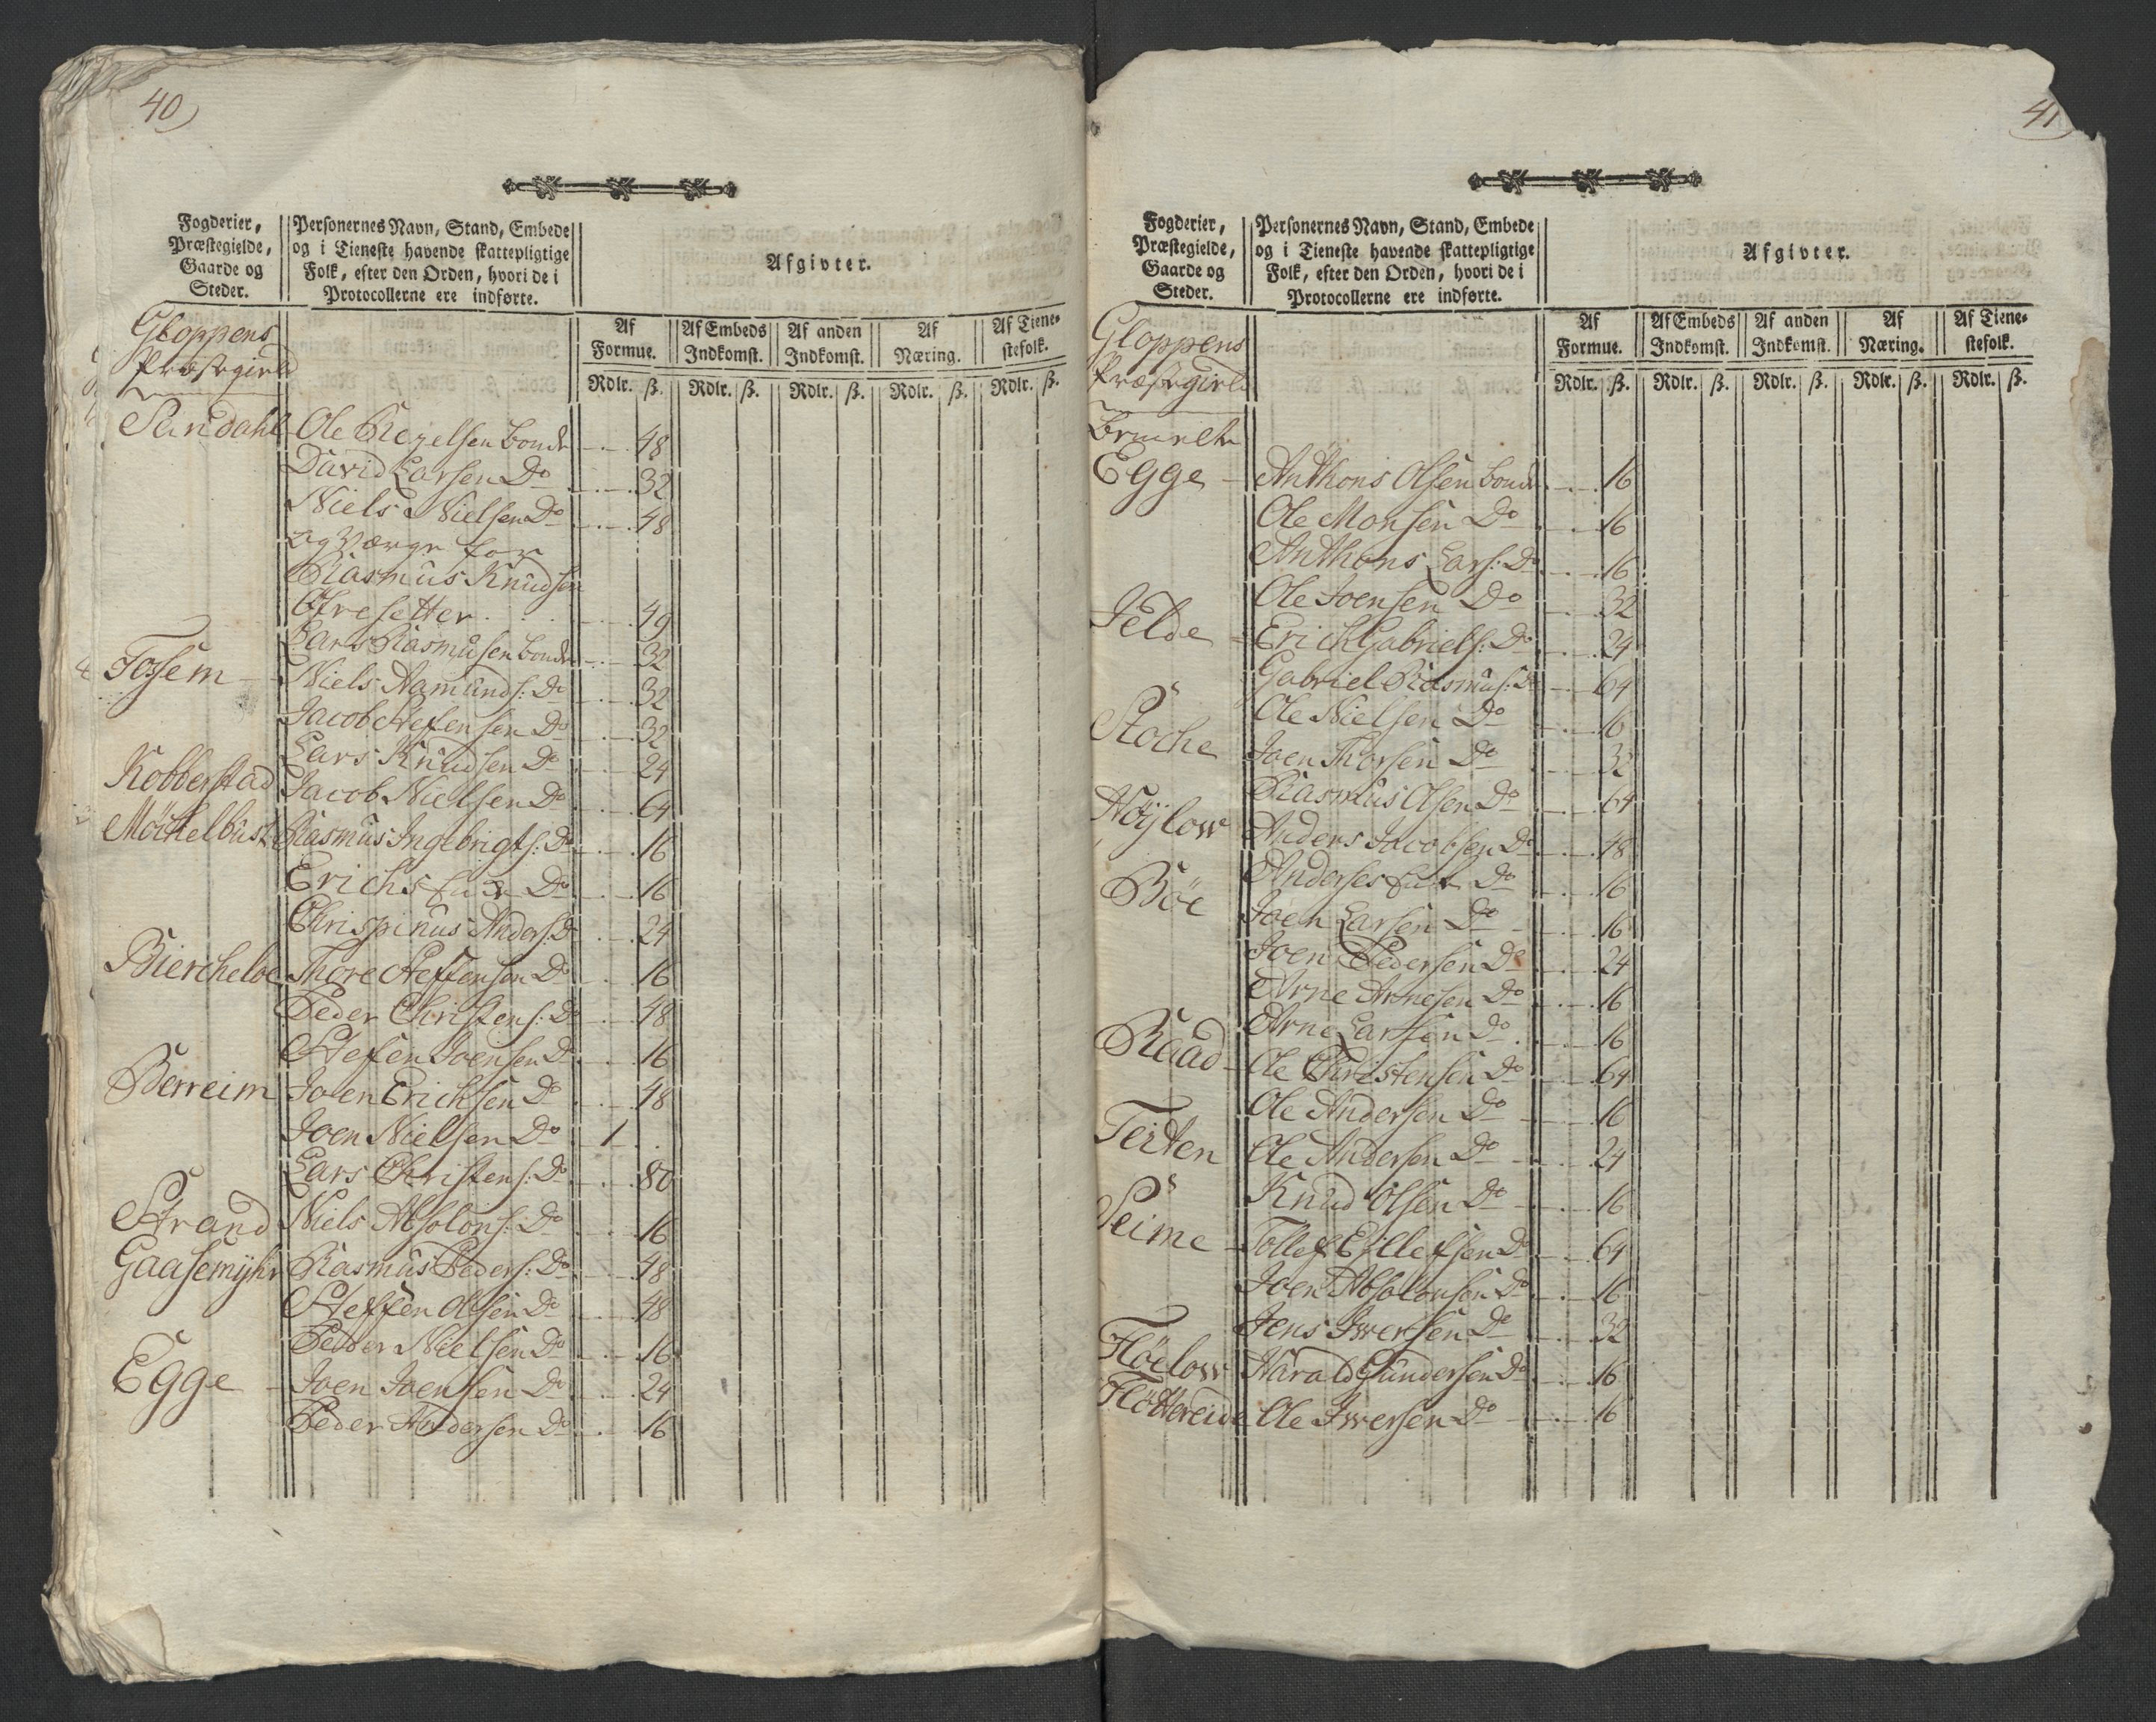 40)
Fogderier,
Præstegielde,
Gaarde og
Steder.
Personernes Navn, Stand, Embede
og i Tieneste havende skattepligtige
Folk, efter den Orden, hvori de i
Protocollerne ere indførte.
Afgivter.
Gloppens
Præstegield
Af Formue.
Af Embeds Indkomst.
Af anden Indkomst.
Af Næring.
Af Tienestefolk.
Rdlr. ß. Rdlr. ß. Rdlr. ß. Rdlr. ß. Rdlr. ß.
Sandahl Ole Regelsen bonde 48
David Larsen Do 32
Niels Nielsen Do 48
og Værge for
Rasmus Knudsen
Øfresetter 49
Lars Rasmusen bonde 32
Fossem Niels Aamunds: Do 32
Jacob Steffensen Do 32
Lars Knudsen Do 24
Robberstad Jacob Nielsen Do 64
Möchelbust Rasmus Ingebrigts: Do 16
Erichs Do 16
Chrispinus Anders: Do 24
Biercheloe Thore Steffensen Do 16
Peder Christens: Do 48
Steffen Joensen Do 16
Berreim Joen Erichsen Do 48
Joen Nielsen Do 1
Lars Christens: Do 80
Strand Niels Absolons: Do 16
Gaasemyhr Rasmus Peders: Do 48
Steffen Olsen Do 48
Peder Nielsen Do 16
Egge Joen Joensen Do 24
Peder Andersen Do 16
41
Fogderier,
Præstegielde,
Gaarde og
Steder.
Personernes Navn, Stand, Embede
og i Tieneste havende skattepligtige
Folk, efter den Orden, hvori de i
Protocollerne ere indførte.
Afgivter.
Gloppens
Præstegield
Af Formue.
Af Embeds Indkomst.
Af anden Indkomst.
Af Næring.
Af Tienestefolk.
Rdlr. ß. Rdlr. ß. Rdlr. ß. Rdlr. ß. Rdlr. ß.
Egge Anthons Olsen bonde 16
Ole Monsen Do 16
Anthons Lars: Do 16
Ole Joensen Do 32
Jelde Erich Gabriels: Do 24
Gabriel Rasmus: Do 64
Ole Nielsen Do 16
Stoche Joen Thorsen Do 32
Rasmus Olsen Do 64
Höylow Anders Jacobsen Do 48
Böe Anderses Do 16
Joen Larsen Do 16
Joen Pedersen Do 24
Arne Arnesen Do 16
Arne Larsen Do 16
Raad Ole Christensen Do 64
Ole Andersen Do 16
Teiten Ole Andersen Do 24
Knud Olsen Do 16
Seime Tollef Ellefsen Do 64
Joen Absolonsen Do 16
Jens Iwersen Do 32
Flöelow Harald Gundersen Do 16
Flöttereide Ole Iwersen Do 16